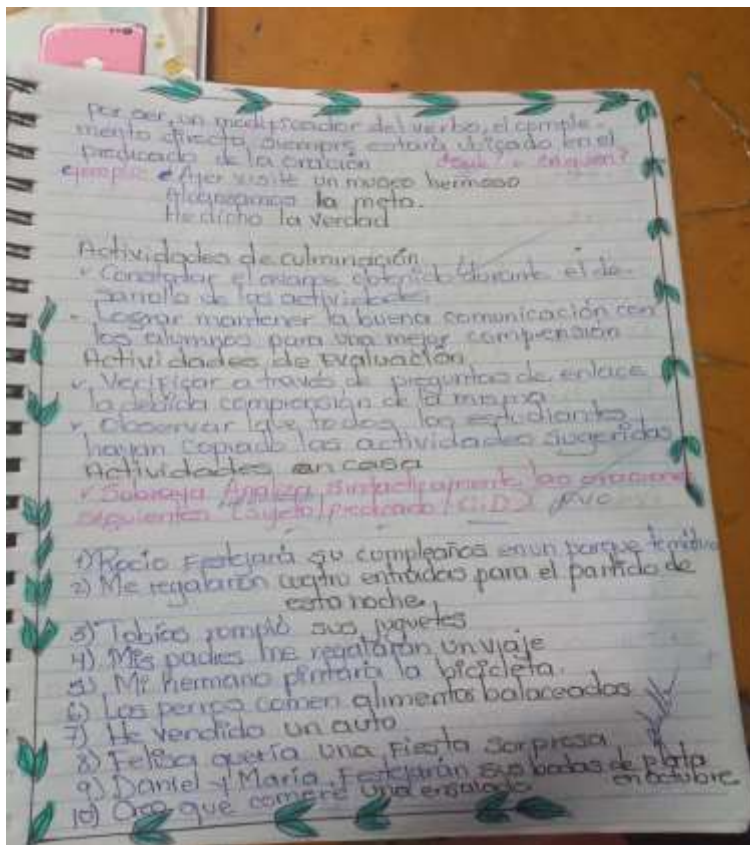 Por ser, un modificador del verbo, el comple-
mento directo, siempre estará ubicado en el
predicado de la oración ¿qué? o ¿a quién?
ejemplo: Ayer visité un museo hermoso
Alcanzamos la meta.
He dicho la verdad
Actividades de culminación
Constatar el avance obtenido durante el de-
sarrollo de las actividades
Lograr mantener la buena comunicación con
los alumnos para una mejor comprensión
Actividades de Evaluación
Verificar a través de preguntas de enlace
la debida comprensión de la misma
Observar que todos los estudiantes
hayan copiado las actividades sugeridas
Actividades en casa
Subraya Analiza Sintacticamente las oraciones
siguientes (sujeto/predicado/C.D)
1) Rocío Festejará su cumpleaños en un parque temático
2) Me regalaron cuatro entradas para el partido de
esta noche.
3) Tobías rompió sus juguetes
4) Mis padres me regalarán un viaje
5) Mi hermano pintará la bicicleta.
6) Los perros comen alimentos balaceados
7) He vendido un auto
8) Felisa quería una Fiesta Sorpresa
9) Daniel y María Festejarán sus bodas de plata
en octubre.
10) Creo que comeré una ensalada